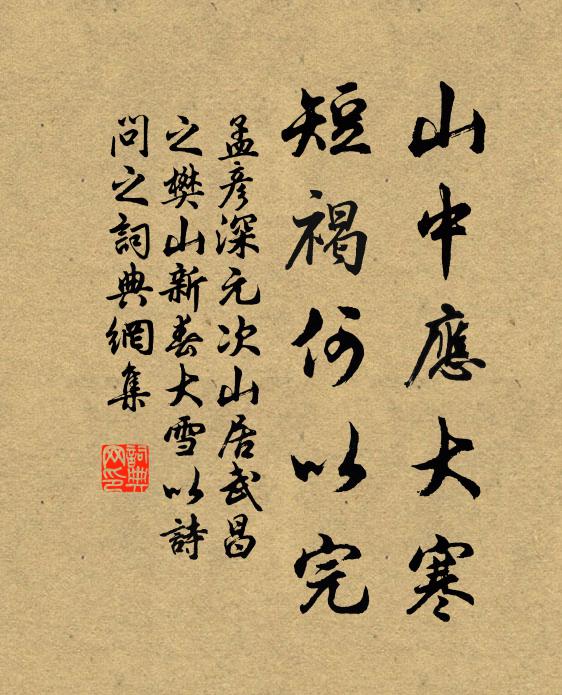 山中應大寒
短褐何以完
孟彥深元次山居武昌
之樊山新春大雪以詩
問之詞典網集
詞典网印